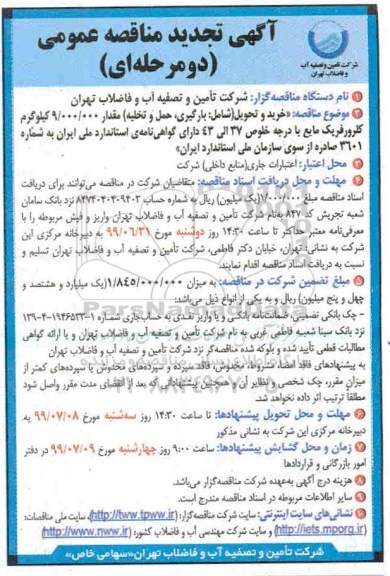 آگهی تجدید مناقصه عمومی
(دو مرحله‌ای)
شرکت تأمین و تصفیه آب
و فاضلاب تهران
۱ نام دستگاه مناقصه‌گزار: شرکت تأمین و تصفیه آب و فاضلاب تهران
۲ موضوع مناقصه: «خرید و تحویل (شامل: بارگیری، حمل و تخلیه) مقدار ۹/۰۰۰/۰۰۰ کیلوگرم
کلرورفریک مایع با درجه خلوص ۳۷ الی ۴۳ دارای گواهی‌نامه‌ی استاندارد ملی ایران به شماره
۳۶۰۱ صادره از سوی سازمان ملی استاندارد ایران»
۳ محل اعتبار: اعتبارات جاری (منابع داخلی) شرکت
۴ مهلت و محل دریافت اسناد مناقصه: متقاضیان شرکت در مناقصه می‌توانند برای دریافت
اسناد مناقصه مبلغ ۱/۰۰۰/۰۰۰ (یک میلیون) ریال به شماره حساب ۸۴۷۴۰۴۰۴۰۹۴۰۳ نزد بانک سامان
شعبه تجریش کد ۸۴۷ به‌نام شرکت تأمین و تصفیه آب و فاضلاب تهران واریز و فیش مربوطه را با
معرفی‌نامه معتبر حداکثر تا ساعت ۱۴:۳۰ روز دوشنبه مورخ ۹۹/۰۶/۳۱ به دبیرخانه مرکزی این
شرکت به نشانی: تهران، خیابان دکتر فاطمی، شرکت تأمین و تصفیه آب و فاضلاب تهران تسلیم و
نسبت به دریافت اسناد مناقصه اقدام نمایند.
۵ مبلغ تضمین شرکت در مناقصه: به میزان ۱/۸۴۵/۰۰۰/۰۰۰ (یک میلیارد و هشتصد و
چهل و پنج میلیون) ریال و به یکی از انواع ذیل می‌باشد:
چک بانکی تضمینی، ضمانت‌نامه بانکی و یا واریز نقدی به حساب جاری شماره ۱-۱۹۴۶۵۳۳-۴-۱۳۹
نزد بانک سینا شعبه فاطمی غربی به نام شرکت تأمین و تصفیه آب و فاضلاب تهران و یا ارائه گواهی
مطالبات قطعی تأیید شده و بلوکه شده مناقصه‌گر نزد شرکت تأمین و تصفیه آب و فاضلاب تهران
به پیشنهادهای فاقد امضا، مشروط، مخدوش، فاقد سپرده و سپرده‌های مخدوش یا سپرده‌های کمتر از
میزان مقرر، چک شخصی و نظایر آن و همچنین پیشنهاداتی که بعد از انقضای مدت مقرر واصل شود
مطلقاً ترتیب اثر داده نخواهد شد.
۶ مهلت و محل تحویل پیشنهادها: تا ساعت ۱۴:۳۰ روز سه‌شنبه مورخ ۹۹/۰۷/۰۸ به
دبیرخانه مرکزی این شرکت به نشانی مذکور
۷ زمان و محل گشایش پیشنهادها: ساعت ۹:۰۰ روز چهارشنبه مورخ ۹۹/۰۷/۰۹ در دفتر
امور بازرگانی و قراردادها
۸ هزینه درج آگهی به‌عهده شرکت مناقصه‌گزار می‌باشد.
۹ سایر اطلاعات مربوطه در اسناد مناقصه مندرج است.
۱۰ نشانی‌های سایت اینترنتی: سایت شرکت مناقصه‌گزار: (http://tww.tpww.ir)، سایت ملی مناقصات:
(http://iets.mporg.ir) و سایت شرکت مهندسی آب و فاضلاب کشور: (http://www.nww.ir)
شرکت تأمین و تصفیه آب و فاضلاب تهران «سهامی خاص»